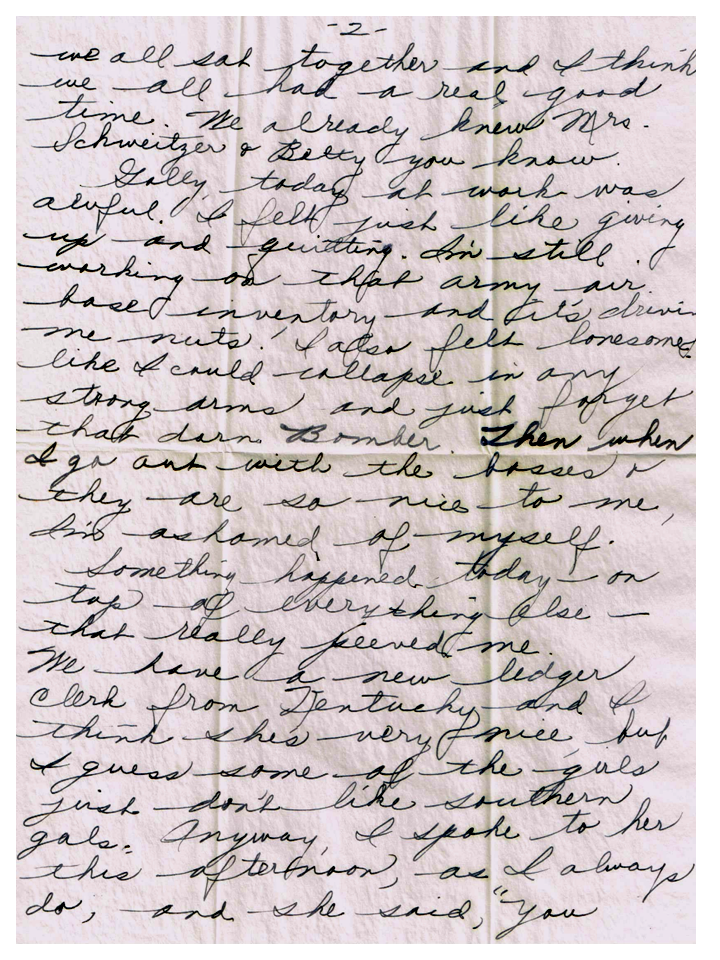 -2-
we all sat together and I think
we all had a real good
time. We already knew Mrs.
Schweitzer & Betty you know.
Golly today at work was
awful. I felt just like giving
up and quitting. I'm still
working on that army air
base inventory and it's drivin
me nuts! I also felt lonesome,
like I could collapse in any
strong arms and just forget
that darn Bomber. Then when
I go out with the bosses &
they are so nice to me,
I'm ashamed of myself.
Something happened today - on
top of everything else -
that really peeved me.
We have a new ledger
clerk from Kentucky and I
think she's very nice but
I guess some of the girls
just don't like southern
gals. Anyway, I spoke to her
this afternoon, as I always
do, and she said, "You